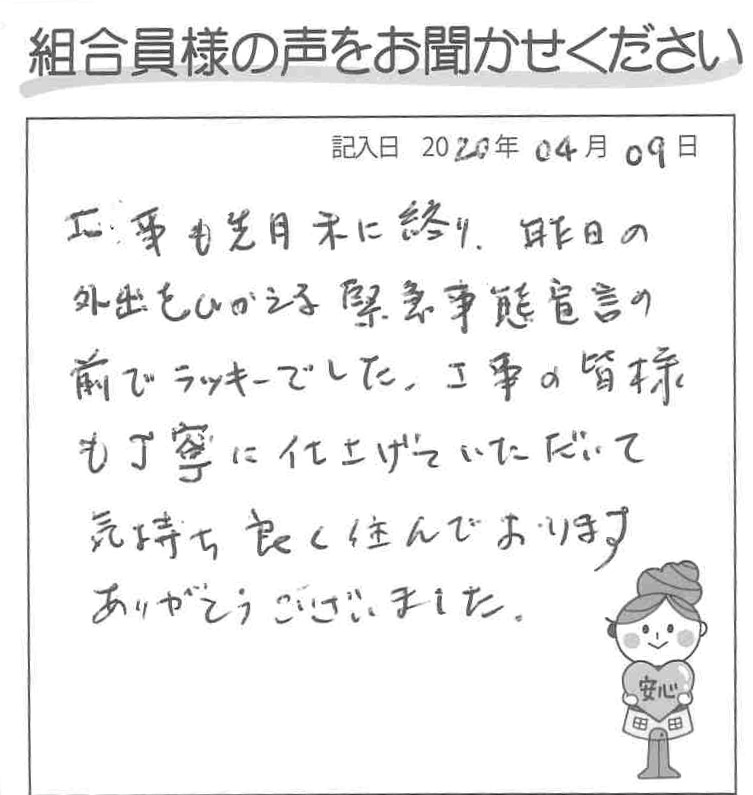 組合員様の声をお聞かせください
記入日 2020年 04月 09日
工事も先月末に終り、昨日の
外出をひかえる緊急事態宣言の
前でラッキーでした。工事の皆様
も丁寧に仕上げていただいて
気持ち良く住んでおります
ありがとうございました。
安心